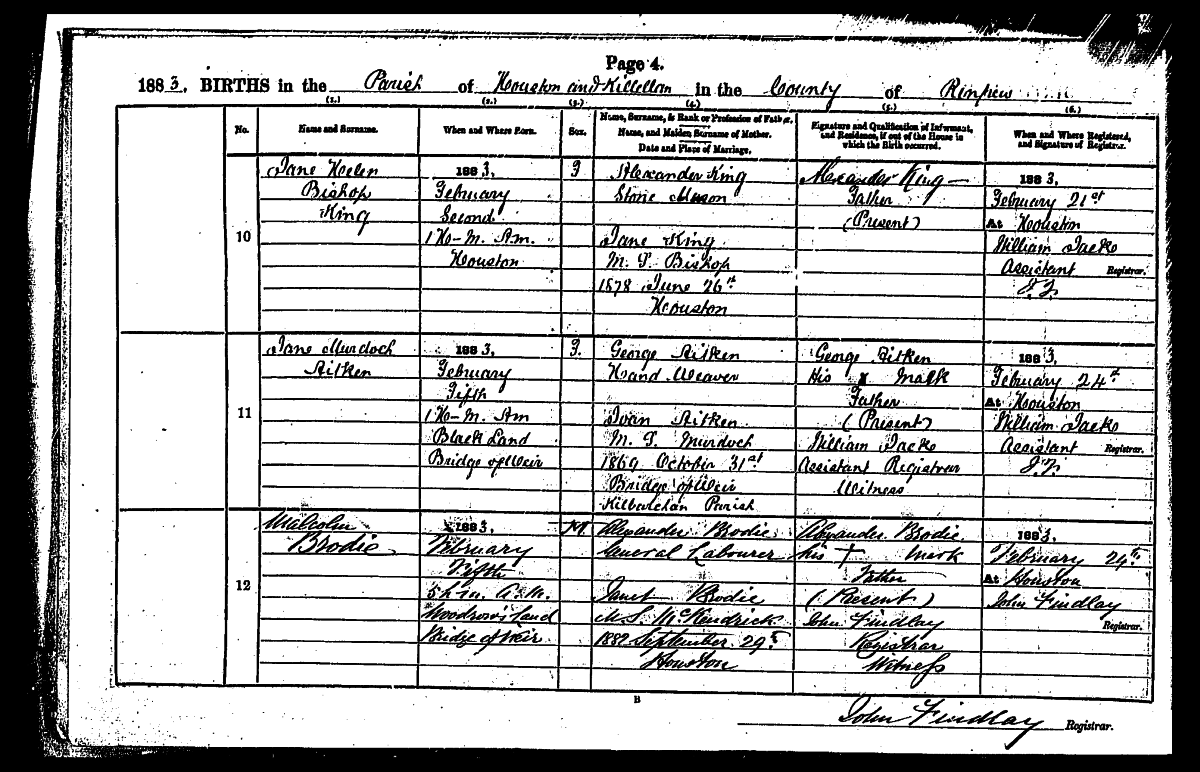 Page 4.
1883. BIRTHS in the Parish of Houston and Killellan in the County of Renfrew
(1.) (2.) (3.) (4.) (5.) (6.)
No.
Name and Surname.
When and Where Born.
Sex.
Name, Surname, & Rank or Profession of Father.
Name, and Maiden Surname of Mother.
Date and Place of Marriage.
Signature and Qualification of Informant,
and Residence, if out of the House in
which the Birth occurred.
When and Where Registered,
and Signature of Registrar.
10
Jane Helen
Bishop
King
1883,
February
Second
1 H- M. A.m.
Houston
F
Alexander King
Stone Mason
Jane King
M. S. Bishop
1878 June 26th
Houston
Alexander King
Father
(Present)
1883,
February 21st
At Houston
William Jacks
Assistant Registrar.
J.F.
11
Jane Murdoch
Aitken
1883,
February
Fifth
1 H- M. A m
Black Land
Bridge of Weir
F.
George Aitken
Hand Weaver
Joan Aitken
M. S. Murdoch
1869 October 31st
Bridge of Weir
Kilbarchan Parish
George Aitken
His x Mark
Father
(Present)
William Jacks
Assistant Registrar
Witness
1883,
February 24th
At Houston
William Jacks
Assistant Registrar.
J.F.
12
Malcolm
Brodie
1883,
February
Fifth
5 h m. A.M.
Woodrow's Land
Bridge of Weir
M
Alexander Brodie
General Labourer
Janet Brodie
M.S. McKendrick
1882 September 29th
Houston
Alexander Brodie
his + mark
Father
(Present)
John Findlay
Registrar
Witness
1883,
February 24th
At Houston
John Findlay
Registrar.
B
John Findlay Registrar.